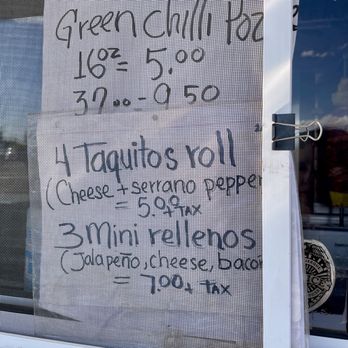 Green Chilli Poz
16oz = 5.00
32oz - 9.50
4 Taquitos roll
(Cheese + serrano pepper
= 5.00 + TAX
3 Mini rellenos
(Jalapeño, cheese, bacon
= 7.00 + TAX